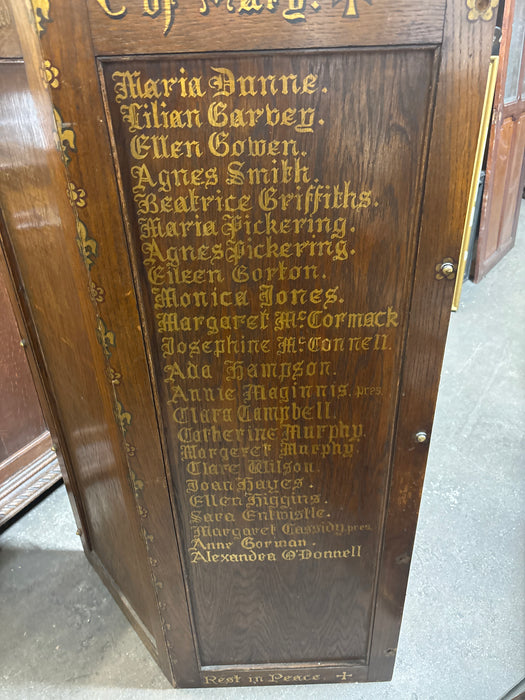 of Mary. +
Maria Dunne.
Lilian Garvey.
Ellen Gowen.
Agnes Smith.
Beatrice Griffiths.
Maria Pickering.
Agnes Pickering.
Eileen Gorton.
Monica Jones.
Margaret McCormack
Josephine McConnell.
Ada Hampson.
Annie Maginnis. pres.
Clara Campbell.
Catherine Murphy.
Margaret Murphy.
Clare Wilson.
Joan Hayes.
Ellen Higgins.
Sara Entwistle.
Margaret Cassidy. pres.
Anne Gorman.
Alexandra O'Donnell
Rest in Peace. +